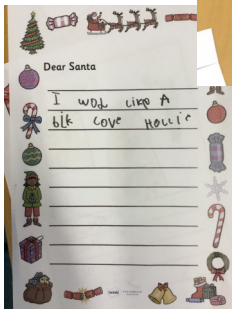 Dear Santa
I wod like A
bik love Hollie